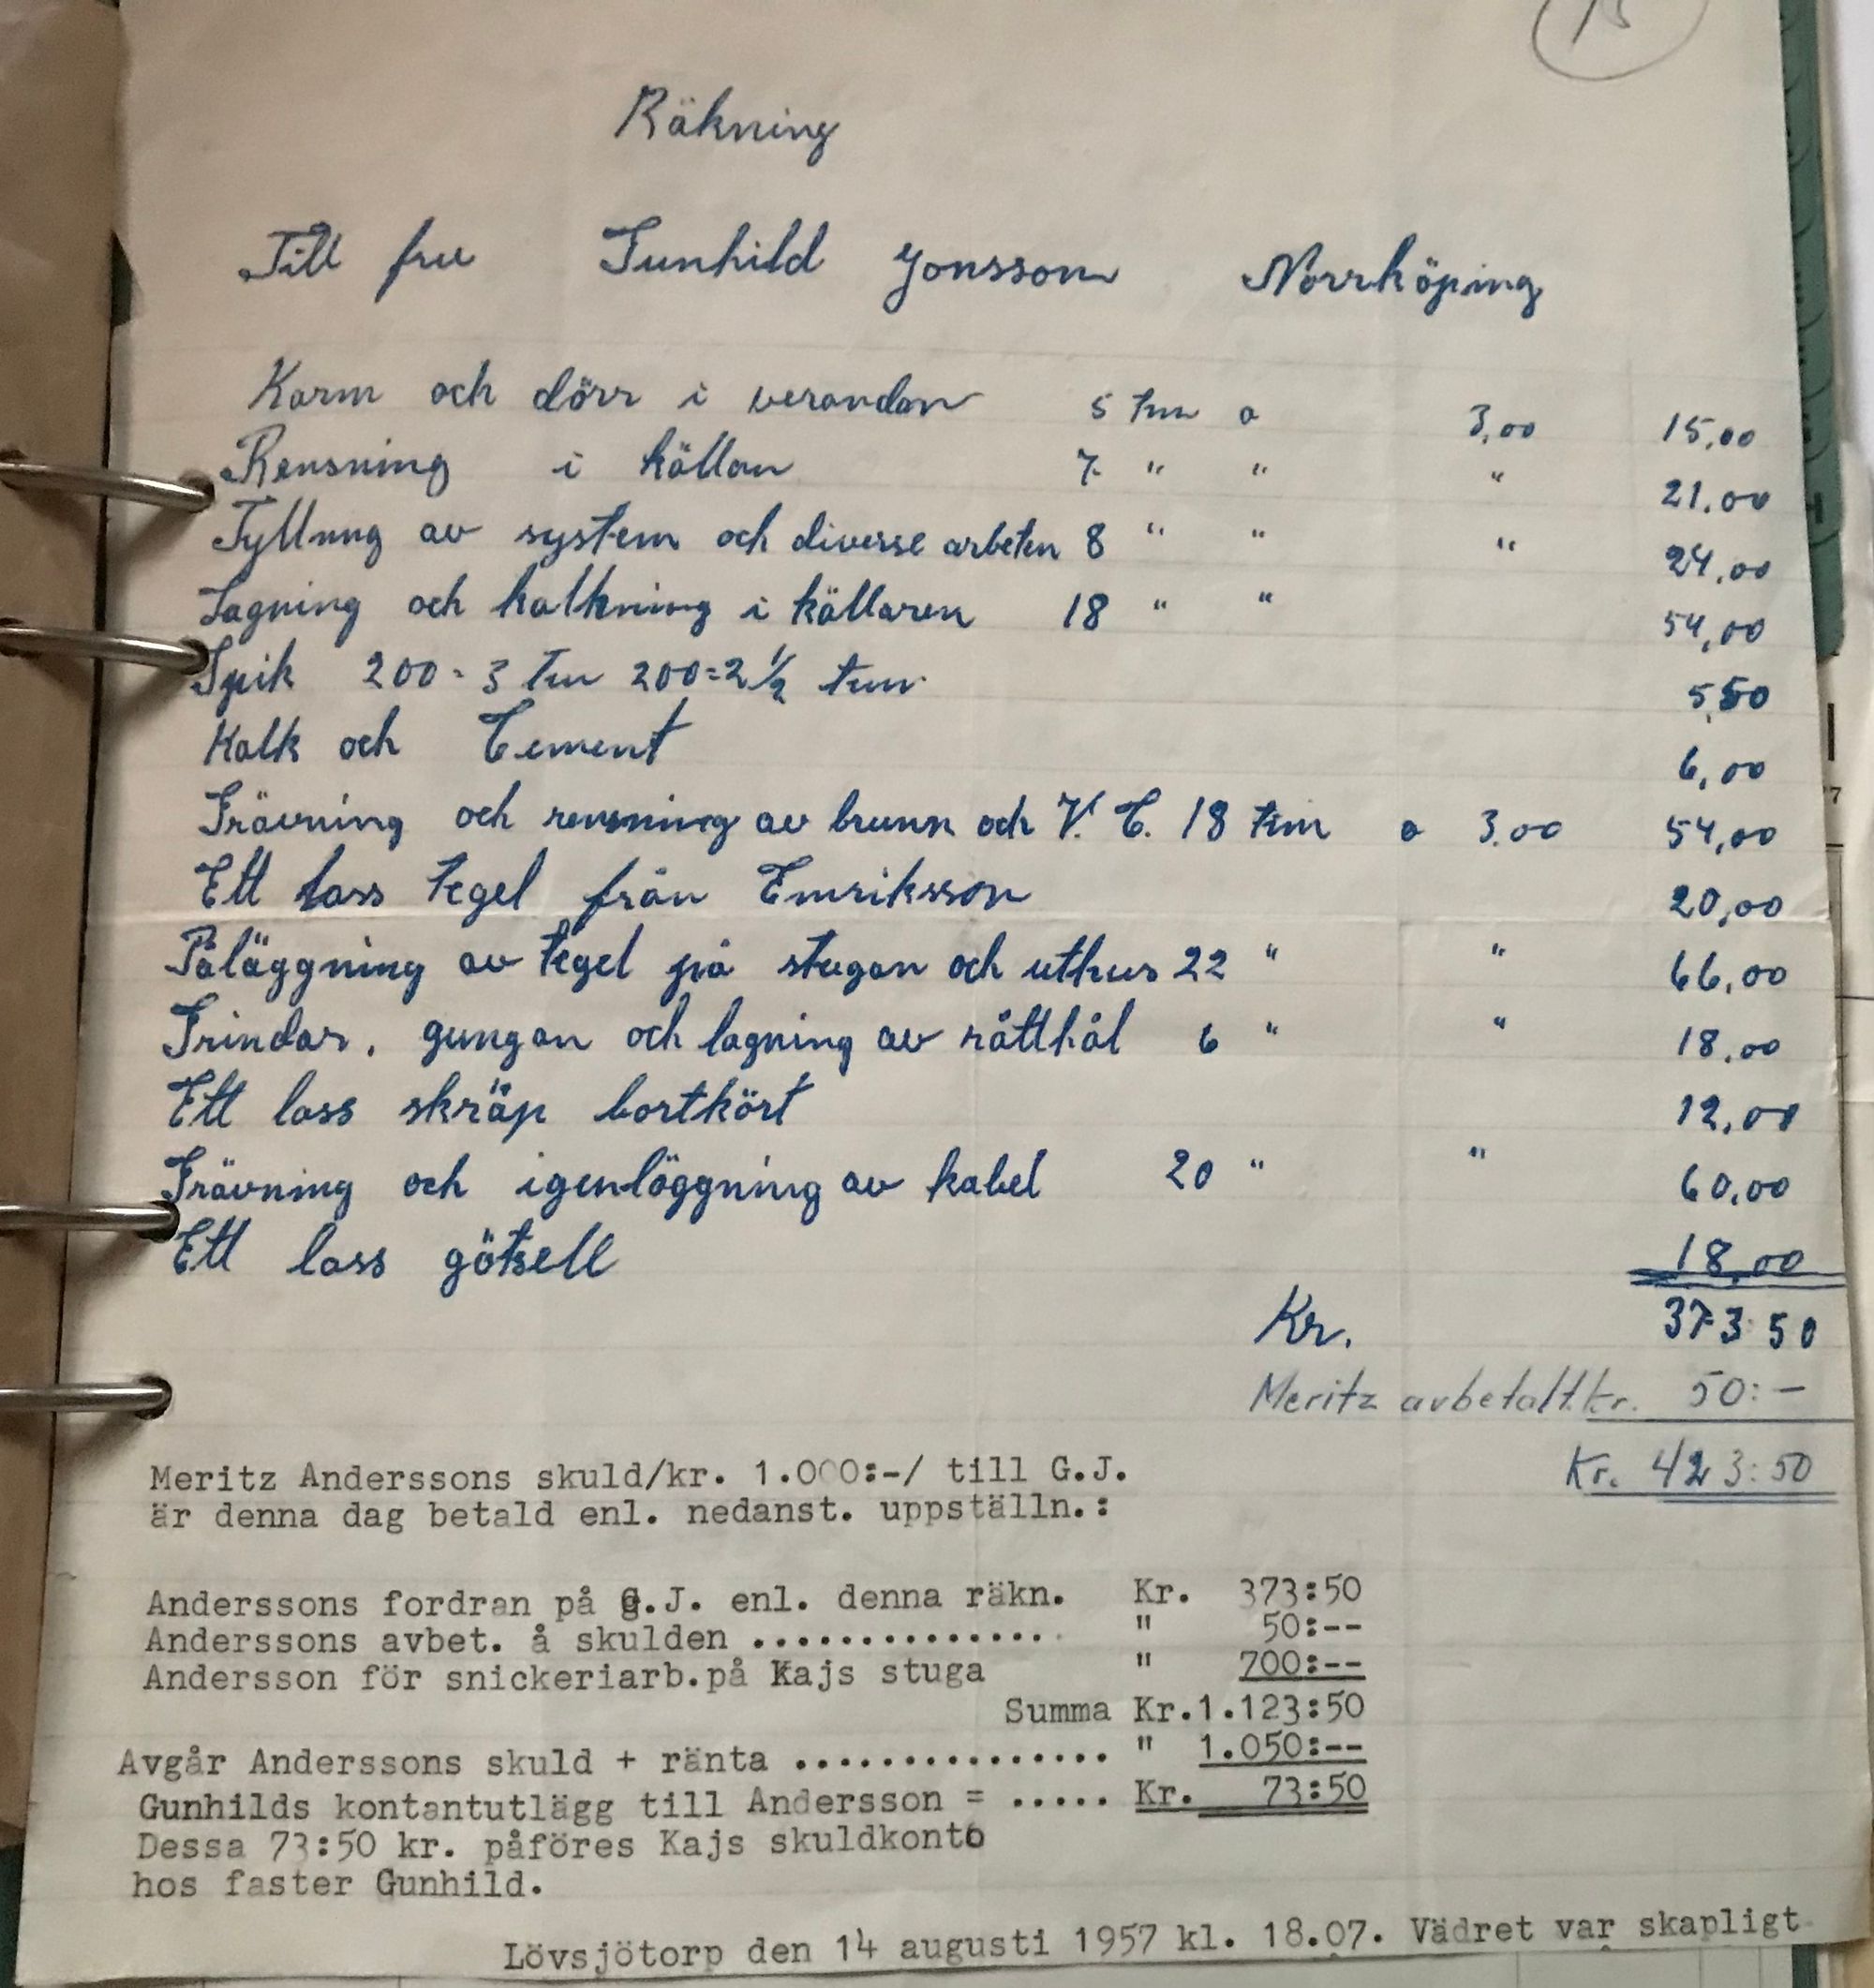 15
Räkning
Till fru Gunhild Jonsson Norrköping
Karm och dörr i verandan 5 tim a 3,00 15,00
Rensning i källan 7 " " " 21,00
Fyllnng av system och diverse arbeten 8 " " " 24,00
Lagning och kalkning i källaren 18 " " 54,00
Spik 200 = 3 tum 200=2 1/2 tum 5,50
Kalk och Cement 6,00
Grävning och rensning av brunn och V. C. 18 tim a 3.00 54,00
Ett lass tegel från Emriksson 20,00
Påläggning av tegel på stugan och uthus 22 " " 66,00
Grindar, gungan och lagning av råtthål 6 " " 18,00
Ett lass skräp bortkört 12,00
Grävning och igenläggning av kabel 20 " " 60,00
Ett lass götsell 18,00
Kr. 373:50
Meritz avbetalt kr. 50:-
Kr. 423:50
Meritz Anderssons skuld/kr. 1.000:-/ till G.J.
är denna dag betald enl. nedanst. uppställn.:
Anderssons fordran på G.J. enl. denna räkn. Kr. 373:50
Anderssons avbet. å skulden .............. " 50:--
Andersson för snickeriarb.på Kajs stuga " 700:--
Summa Kr.1.123:50
Avgår Anderssons skuld + ränta ............... " 1.050:--
Gunhilds kontantutlägg till Andersson = ..... Kr. 73:50
Dessa 73:50 kr. påföres Kajs skuldkonto
hos faster Gunhild.
Lövsjötorp den 14 augusti 1957 kl. 18.07. Vädret var skapligt